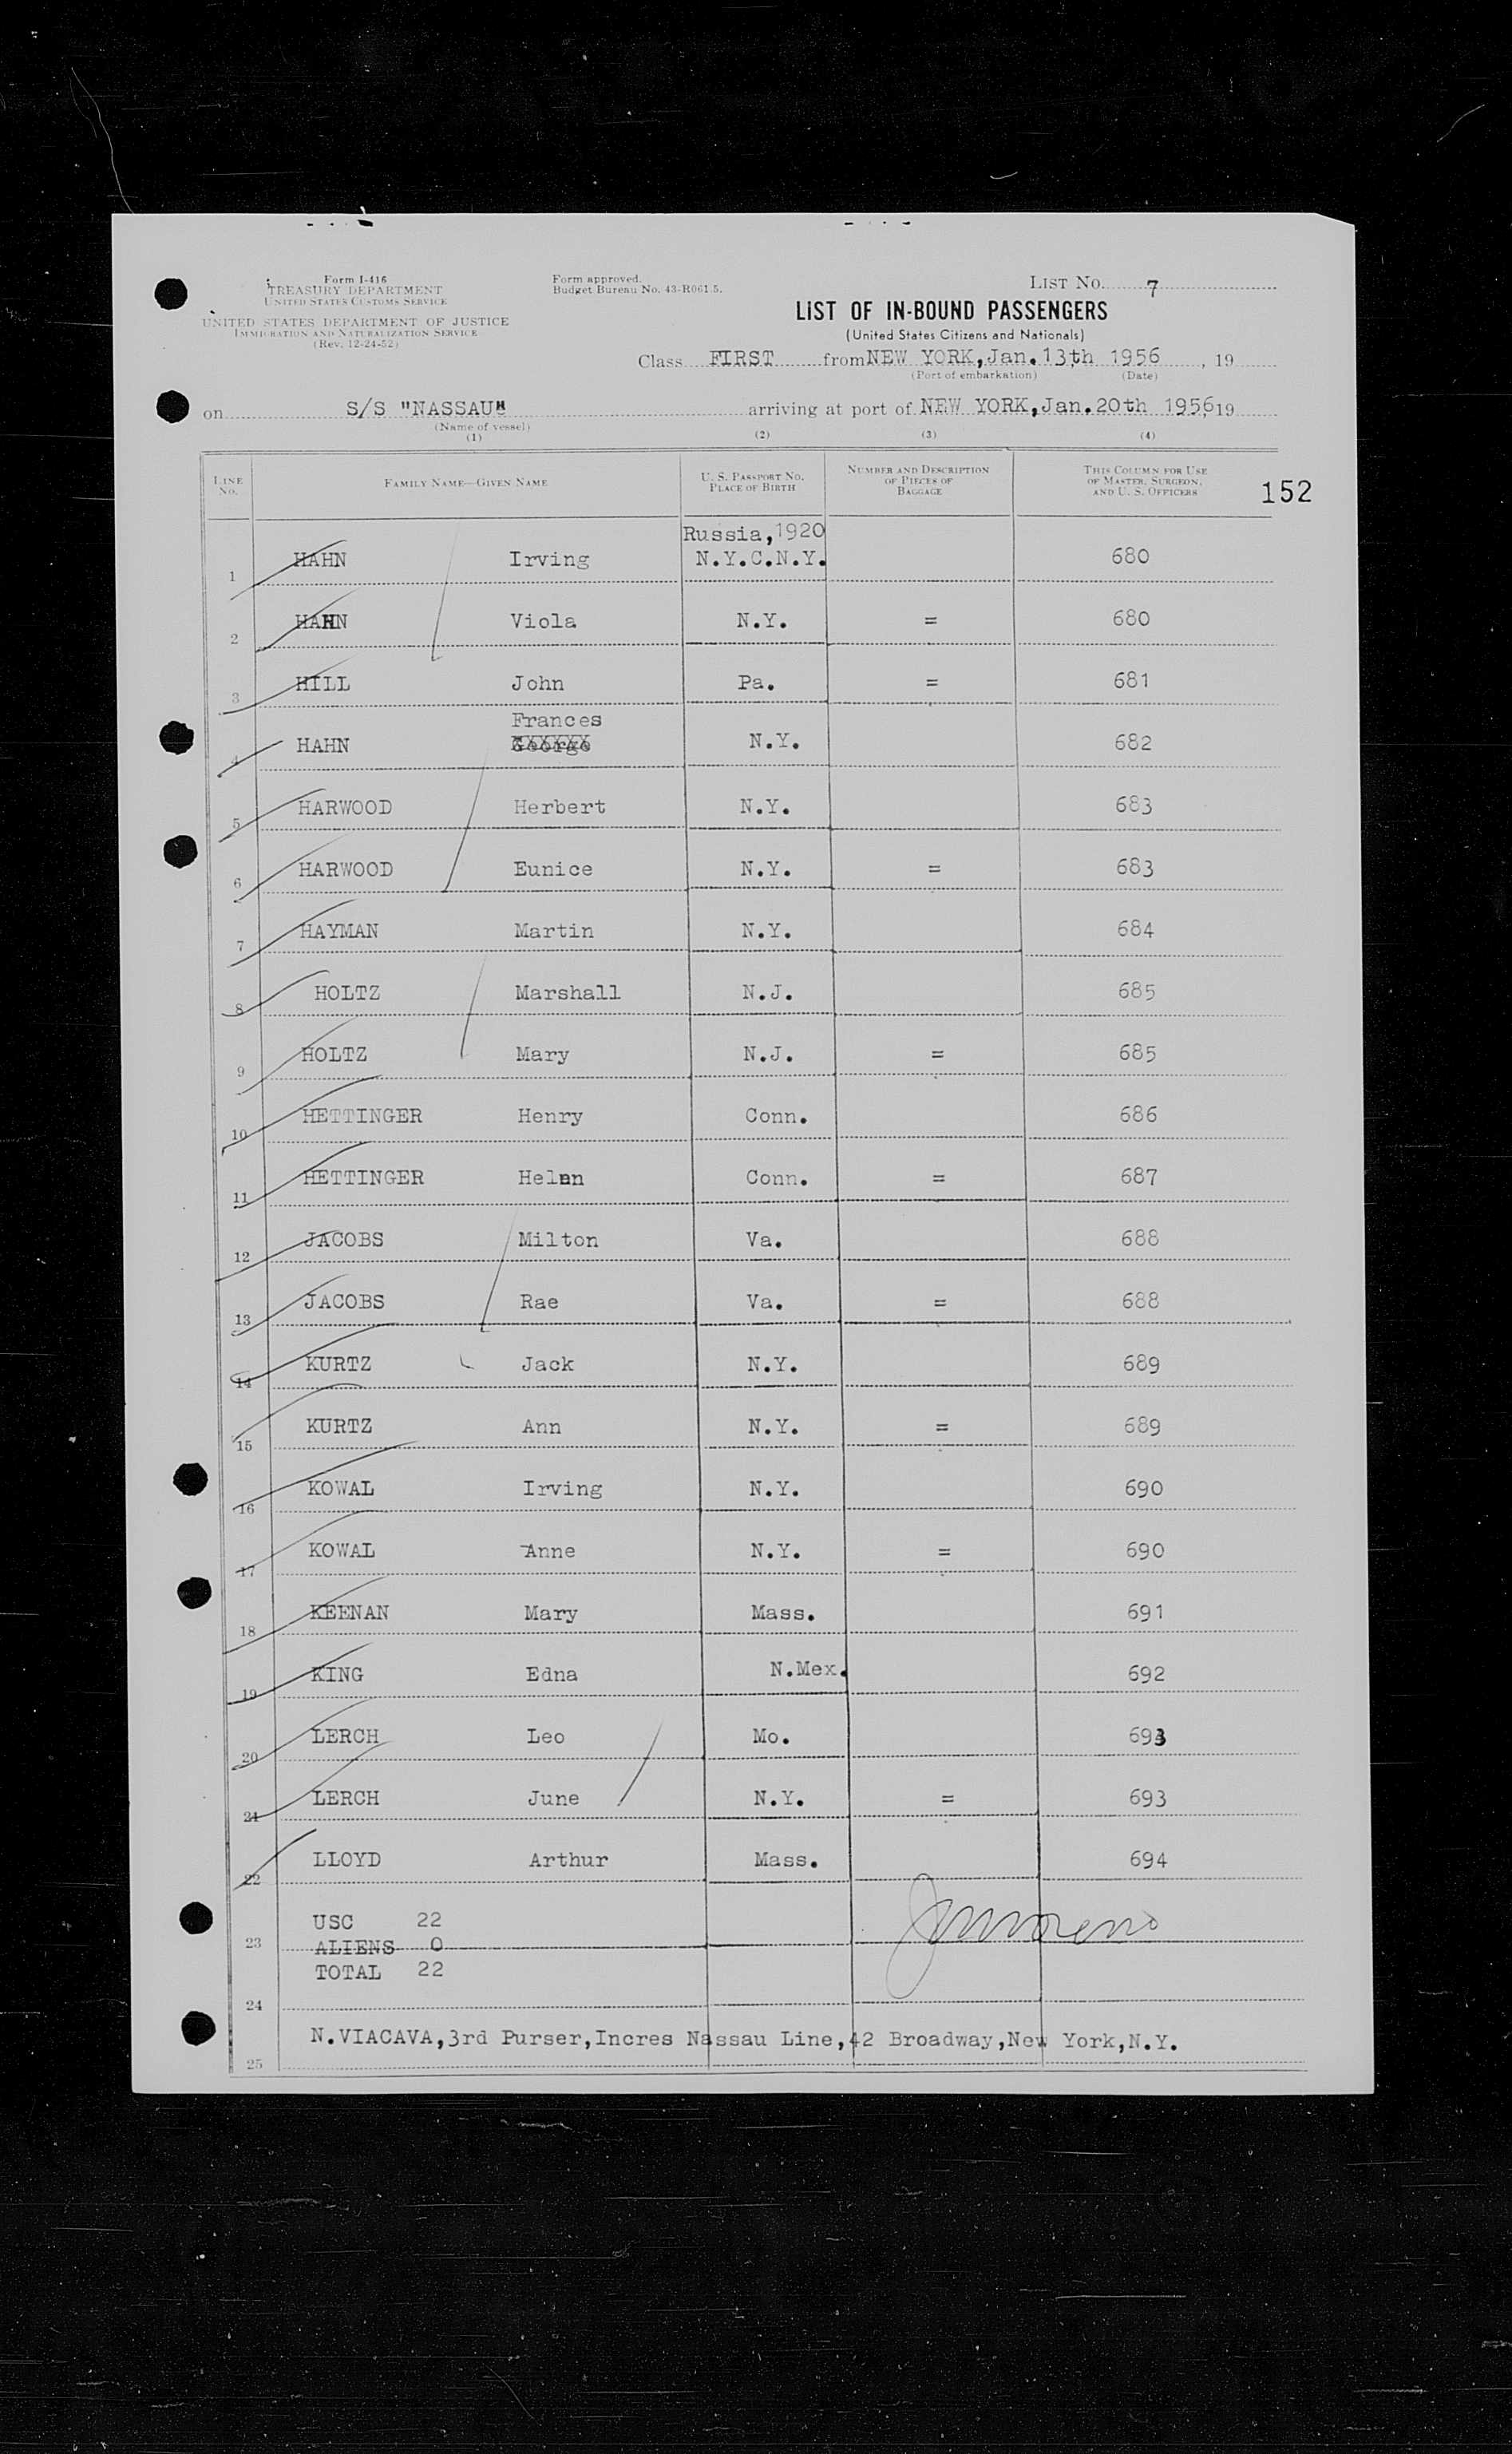 Form I-416
TREASURY DEPARTMENT
UNITED STATES CUSTOMS SERVICE
UNITED STATES DEPARTMENT OF JUSTICE
IMMIGRATION AND NATURALIZATION SERVICE
(Rev. 12-24-52)
Form approved.
Budget Bureau No. 43-R061.5.
LIST No. 7
LIST OF IN-BOUND PASSENGERS
(United States Citizens and Nationals)
Class FIRST from NEW YORK, Jan. 13th 1956, 19
(Port of embarkation) (Date)
on S/S "NASSAU" arriving at port of NEW YORK, Jan. 20th 1956 19
(Name of vessel)
(1) (2) (3) (4)
LINE No. FAMILY NAME—GIVEN NAME U. S. PASSPORT NO. PLACE OF BIRTH NUMBER AND DESCRIPTION OF PIECES OF BAGGAGE THIS COLUMN FOR USE OF MASTER, SURGEON, AND U. S. OFFICERS
152
Russia, 1920
1 HAHN Irving N.Y.C.N.Y. 680
2 HAHN Viola N.Y. = 680
3 HILL John Pa. = 681
Frances
4 HAHN George N.Y. 682
5 HARWOOD Herbert N.Y. 683
6 HARWOOD Eunice N.Y. = 683
7 HAYMAN Martin N.Y. 684
8 HOLTZ Marshall N.J. 685
9 HOLTZ Mary N.J. = 685
10 HETTINGER Henry Conn. 686
11 HETTINGER Helen Conn. = 687
12 JACOBS Milton Va. 688
13 JACOBS Rae Va. = 688
14 KURTZ Jack N.Y. 689
15 KURTZ Ann N.Y. = 689
16 KOWAL Irving N.Y. 690
17 KOWAL Anne N.Y. = 690
18 KEENAN Mary Mass. 691
19 KING Edna N.Mex. 692
20 LERCH Leo Mo. 693
21 LERCH June N.Y. = 693
22 LLOYD Arthur Mass. 694
USC 22
23 ALIENS 0
TOTAL 22
24
N.VIACAVA, 3rd Purser, Incres Nassau Line, 42 Broadway, New York, N.Y.
25